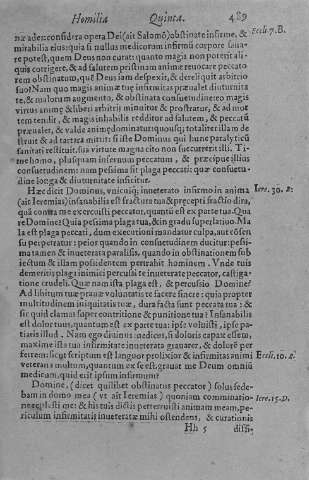 Homilia Quinta. 489
næ ades: considera opera Dei (ait Salomõ) obstinate infirme, & Eccli 7. B.
mirabilia eius: quia si nullus medicorum infirmū corpore sana-
re potest, quem Deus non curat: quanto magis non poterit ali-
quis corrigere, & ad salutem pristinam animæ reuocare peccato
rem obstinatum, quē Deus iam despexit, & dereliquit arbitrio
suo? Nam quo magis animæ tua infirmitas præualet diuturnita
te, & malorum augmento, & obstinata consuetudine: eo magis
virtus animę & liberi arbitrij minuitur & prosternitur, & ad mor
tem tendit, & magis inhabilis redditor ad salutem, & peccatū
præualet, & valde animę dominatur: quousq; totaliter illam de
struat & ad tartara mittat: si iste Dominus qui hunc paralyticū
sanitati restituit, sua virtute magna cito non succurrerit illi. Ti-
me homo, plusquam infernum peccatum, & præcipue illius
consuetudinem: nam pessima sit plaga peccati: quæ consuetu-
dine longa & diuturnitate insicitur.
Hæc dicit Dominus, vnicuiq; inueterato infirmo in anima Iere. 30. B.
(ait Ieremias) insanabilis est fractura tua & precepti fractio dira,
quā contra me exercuisti peccator, quantū est ex parte tua. Qua
re Domine? Quia pessima plaga tua, & in gradu superlatiuo. Ma
la est plaga peccati, dum executioni mandatur culpa, aut cōsen
su perpetratur: peior quando in consuetudinem ducitur: pessi-
ma tamen & inueterata paralisis, quando in obstinationem sub
iectum & illam possidentem pertrahit hominem. Vnde tuis
demeritis plaga inimici percussi te inueterate peccator, castiga-
tione crudeli. Quæ nam ista plaga est, & percussio Domine?
Ad libitum tuæ prauæ voluntatis te facere sincre: quia propter
multitudinem iniquitatis tuæ, dura facta sunt peccata tua: &
sic quid clamas super contritione & punitione tua? Insanabilis
est dolor tuus, quantum est ex parte tua: ipse voluisti, ipse pa-
tiaris illud. Nam ego diuinus medicus, si doloris capax essem,
maxime ista tua infirmitate inueterata grauarer, & dolorē per
ferrem: sicut scriptum est languor prolixior & infirmitas animi Eccli. 10. B.
veterans multum, quantum ex se est, grauat me Deum omniū
medicum, quid erit ipsum infirmum?
Domine, (dicet quilibet obstinatus peccator) solus sede-
bam in domo mea (vt ait Ieremias) quoniam comminatio- Iere. 15. D.
ne replesti me: & his tuis dictis perterruisti animam meam, pe-
riculum infirmitatis inueteratæ mihi ostendens, & curationis
Hh 5 diffi-